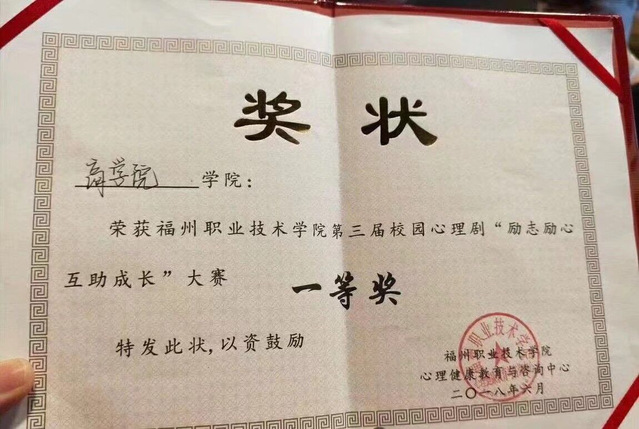 奖状
商学院学院：
荣获福州职业技术学院第三届校园心理剧“励志励心
互助成长”大赛
一等奖
特发此状,以资鼓励
福州职业技术学院
心理健康教育与咨询中心
二〇一八年六月